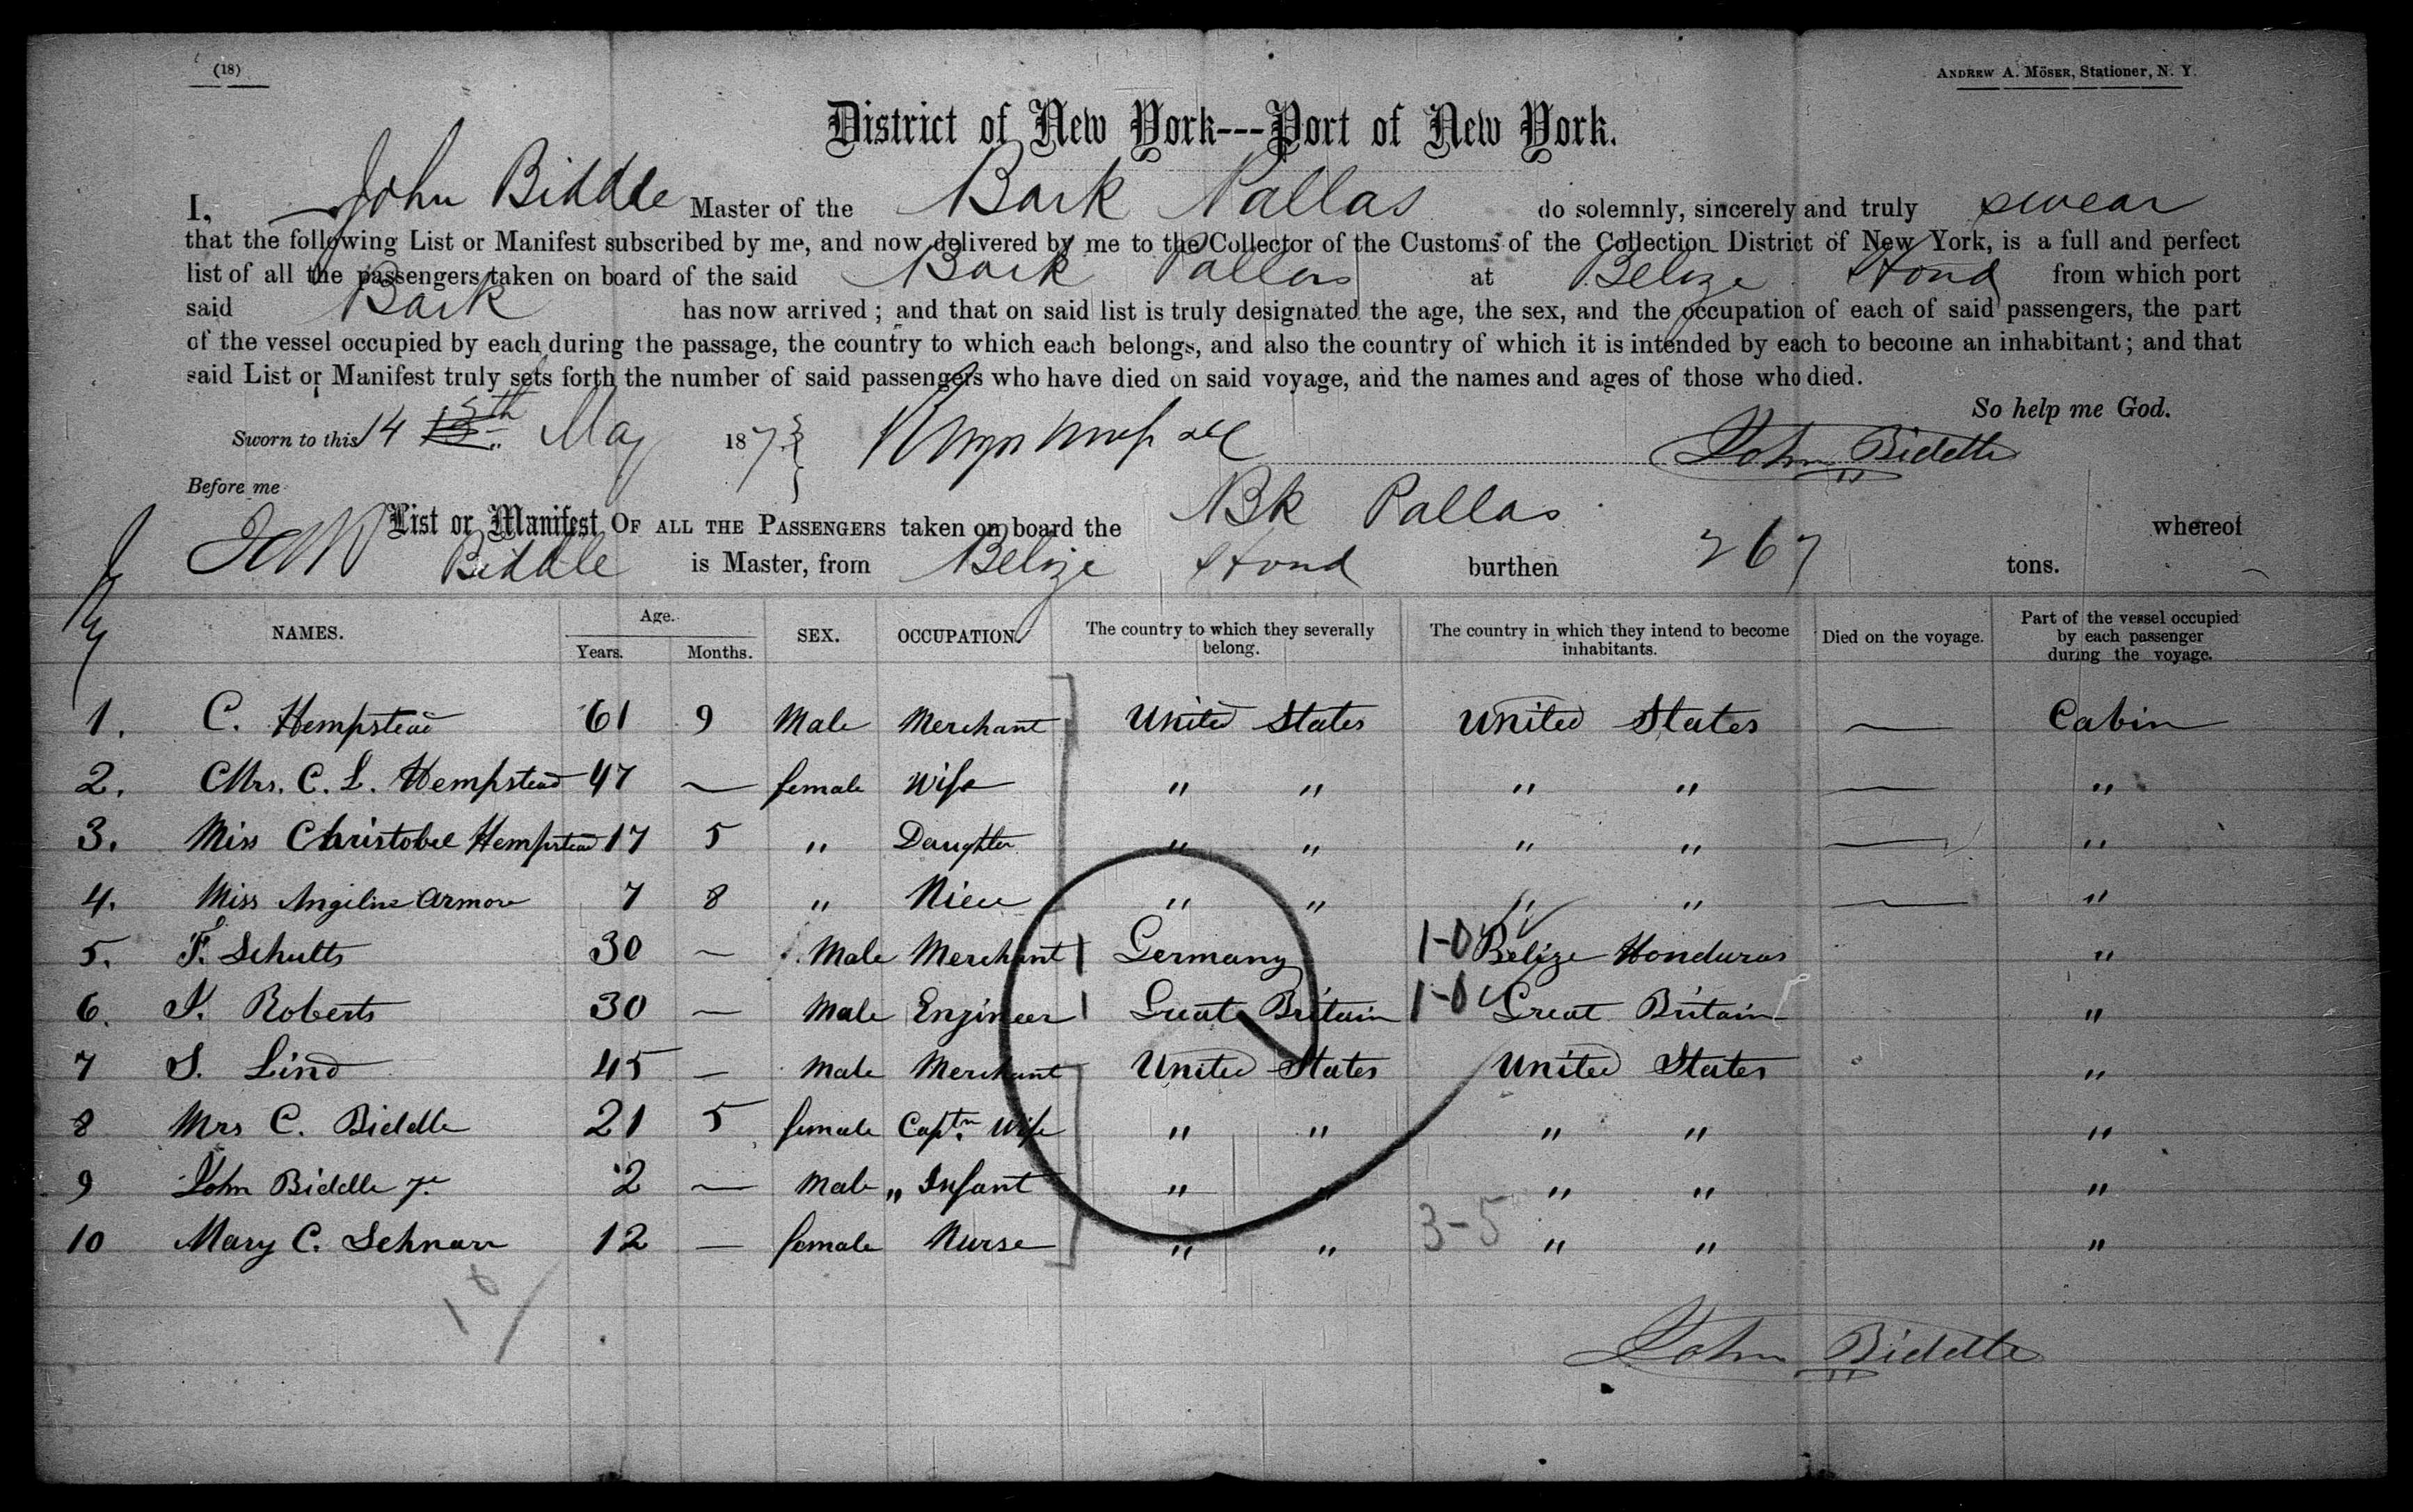 (18)
ANDREW A. MÖSER, Stationer, N. Y.
District of New York---Port of New York.
I, John Biddle Master of the Bark Pallas do solemnly, sincerely and truly swear
that the following List or Manifest subscribed by me, and now delivered by me to the Collector of the Customs of the Collection District of New York, is a full and perfect
list of all the passengers taken on board of the said Bark Pallas at Belize Hond from which port
said Bark has now arrived; and that on said list is truly designated the age, the sex, and the occupation of each of said passengers, the part
of the vessel occupied by each during the passage, the country to which each belongs, and also the country of which it is intended by each to become an inhabitant; and that
said List or Manifest truly sets forth the number of said passengers who have died on said voyage, and the names and ages of those who died.
So help me God.
Sworn to this 14 May 187 John Biddle
Before me
List or Manifest OF ALL THE PASSENGERS taken on board the Bk Pallas whereof
Biddle is Master, from Belize Hond burthen 267 tons.
NAMES. Age. Years. Months. SEX. OCCUPATION. The country to which they severally belong. The country in which they intend to become inhabitants. Died on the voyage. Part of the vessel occupied by each passenger during the voyage.
1. C. Hempstead 61 9 Male Merchant United States United States — Cabin
2. Mrs. C. L. Hempstead 47 — female Wife " " " " — "
3. Miss Christobel Hempstead 17 5 " Daughter " " " " — "
4. Miss Angeline Armore 7 8 " Niece " " " " — "
5. F. Schults 30 — Male Merchant Germany 1-0 Belize Honduras "
6. J. Roberts 30 — Male Engineer Great Britain 1-0 Great Britain "
7 S. Lind 45 — Male Merchant United States United States "
8 Mrs C. Biddle 21 5 female Captn. Wife " " " " "
9 John Biddle Jr. 2 — Male " Infant " " " " "
10 Mary C. Schnarr 12 — female Nurse " " 3-5 " " "
10
John Biddle